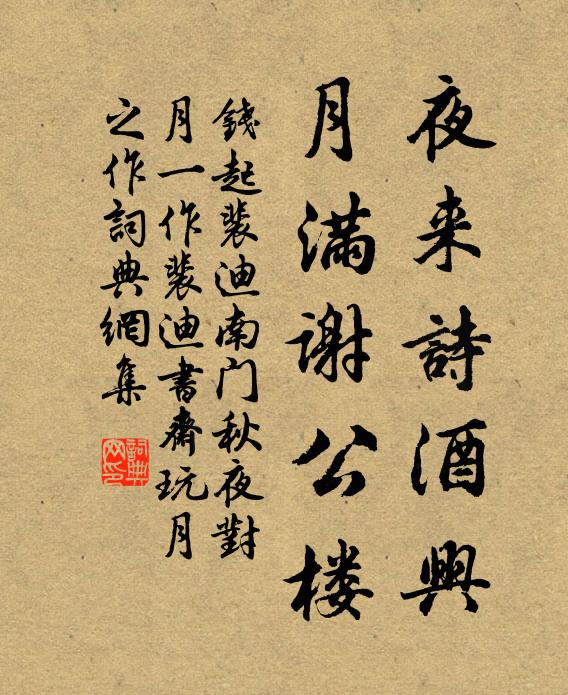 夜来詩酒興
月滿谢公楼
錢起裴迪南门秋夜對
月一作裴迪書齋玩月
之作詞典網集
詞典
网印